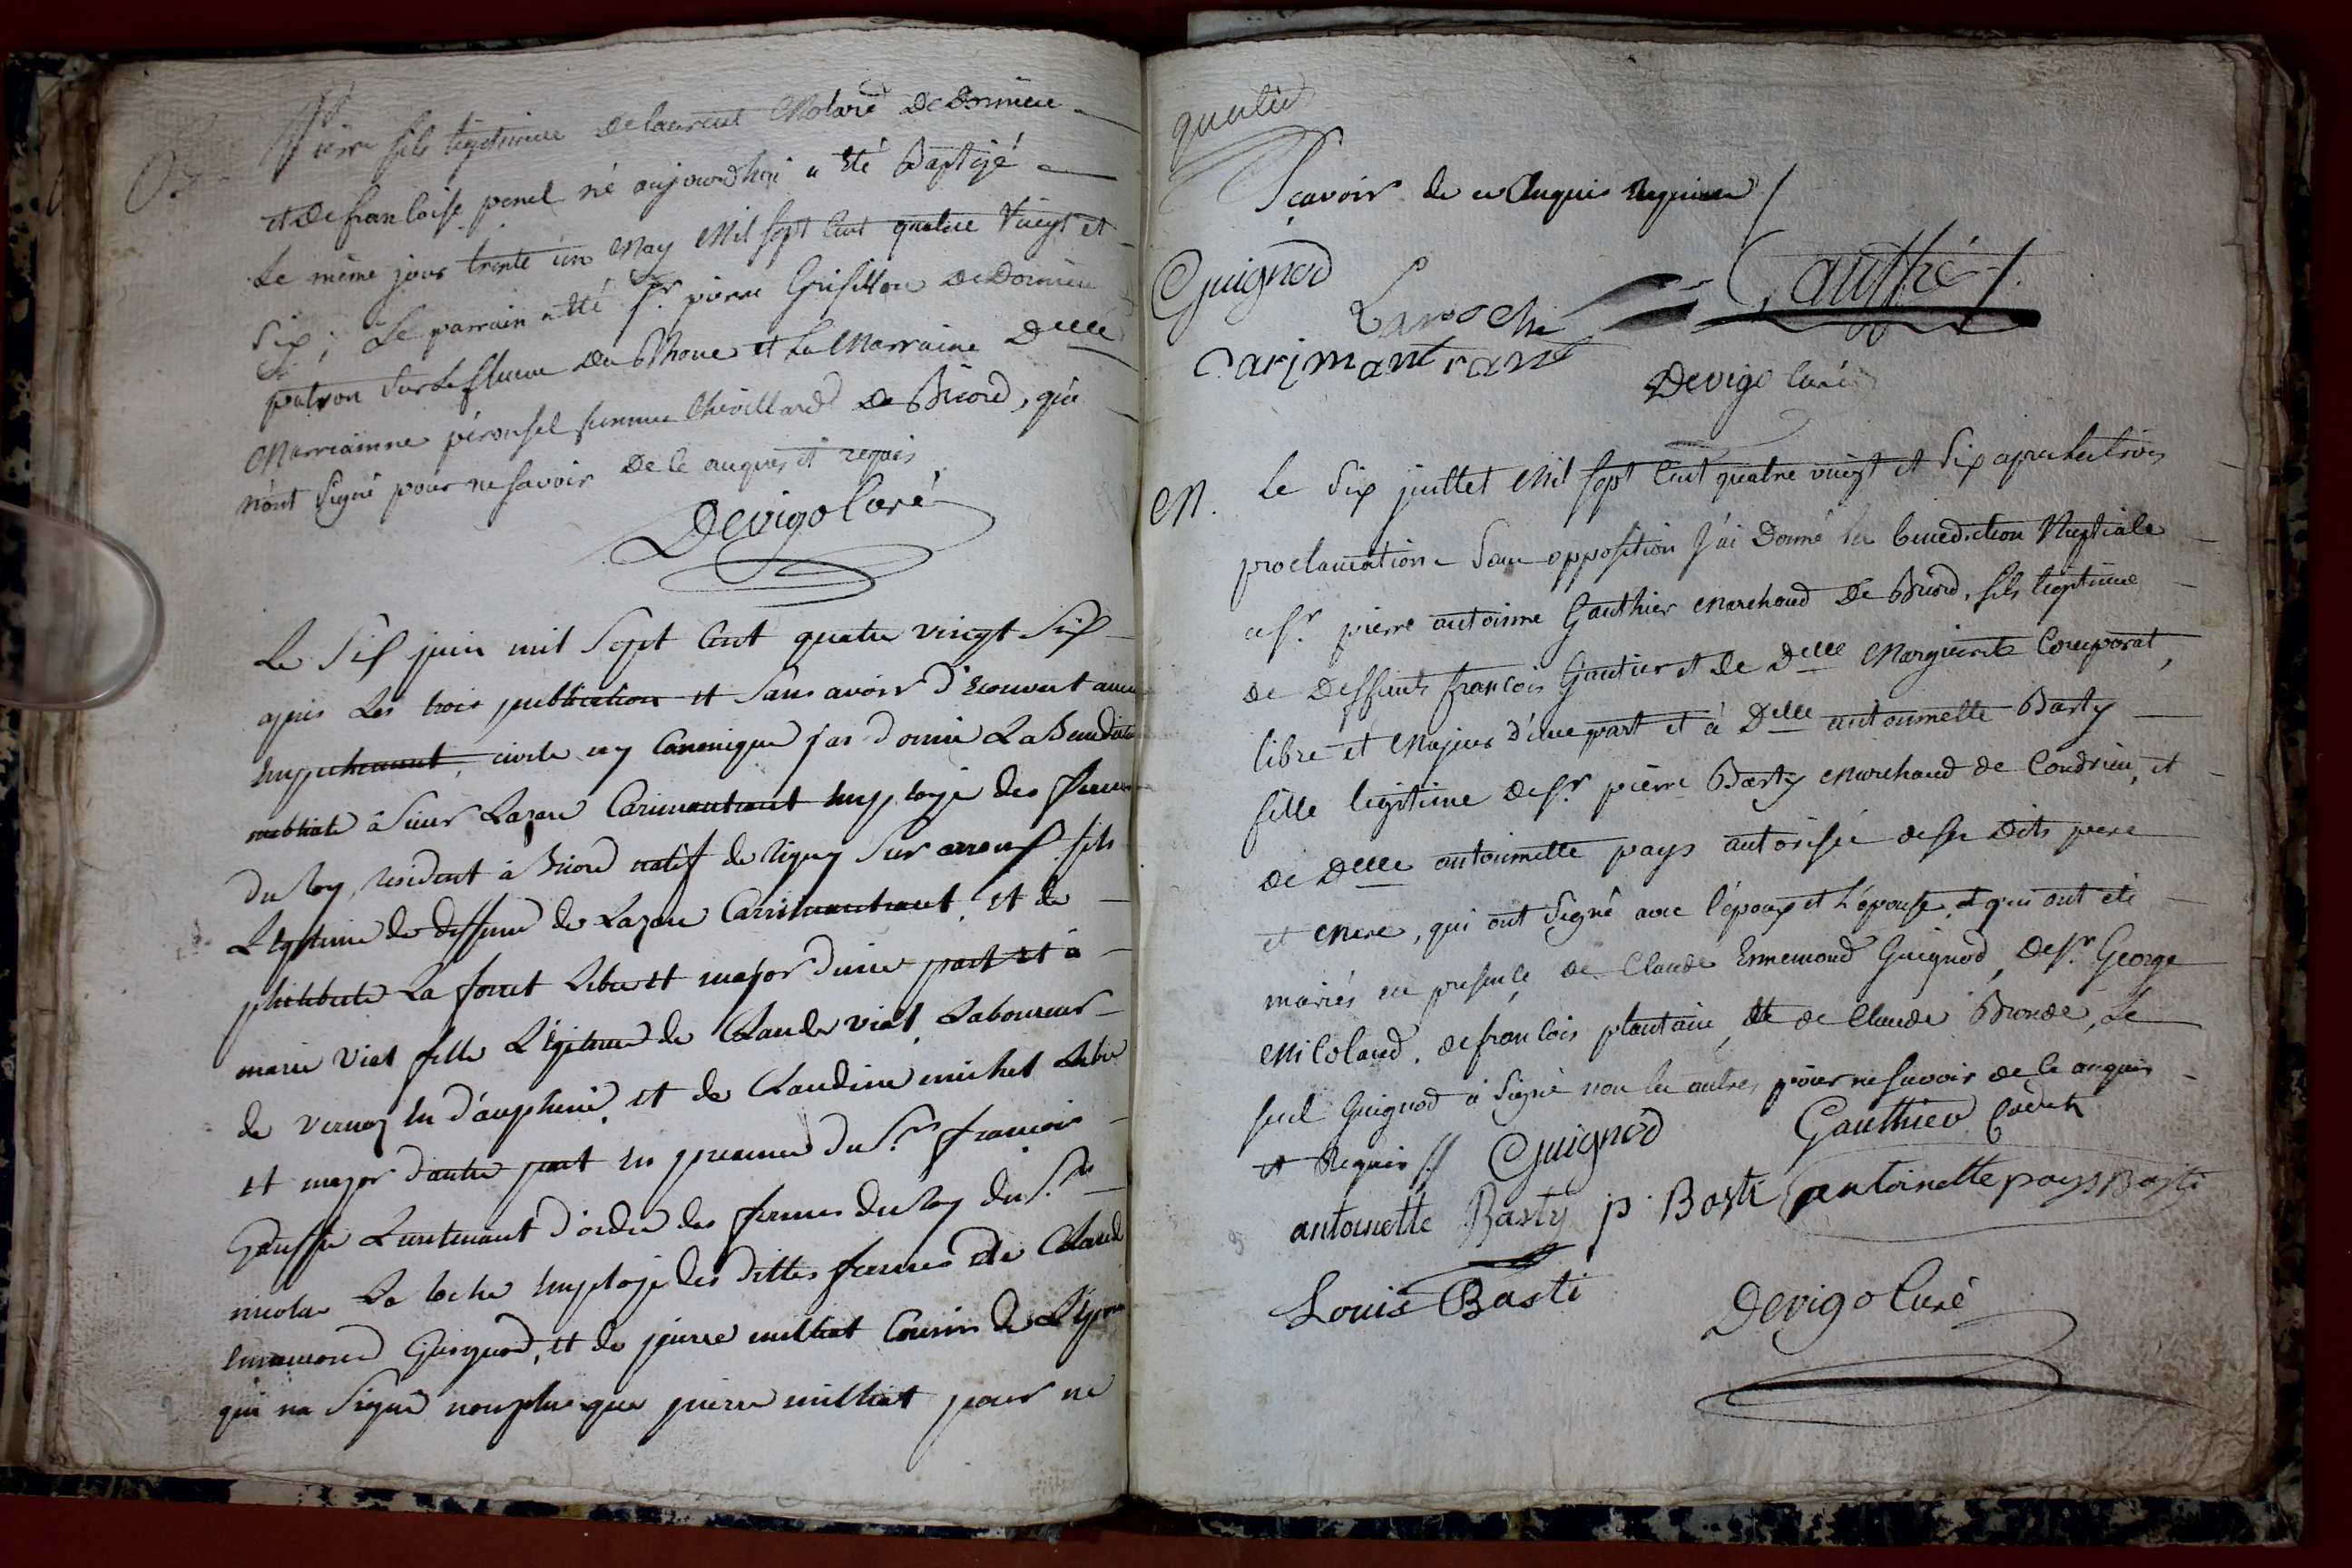 Pierre fils legitimme de laurent Molard De Dornieu
et De francoise penel né aujourdhuy a Eté Baptisé
Le même jour trente un May Mil sept Cent quatre Vingt et
Six; Le parrain a Eté Sr. pierre Grisillon De Dornieu
patron sur Le fleuve du Rhone et La Marraine Delle
Marrianne pérousel femme Chevillard de Briord, qui
n'ont signé pour ne savoir De ce anquis et requis
Devigo Curé
Le Six juin mil Sept Cent quatre vingt Six
apres Les trois publication et Sans avoir d'Ecouvert aucun
Empechement, civile ny Canonique j'ai donné La Benediction
nubtiale à Sieur Lazare Carimantrant Employé des fermes
du Roy, resident à Briord natif de Digny Sur arrouf fils
Legitime de deffunt de Lazare Carrimantrant, et de
philiberte La foret Libre et major d'une part et à
marie Viat fille Légitime de Claude viat, Laboureur
de Vernas En d'auphiné, et de Claudine michet Libre
et major d'autre part En presence du Sr. françois
Gauffre Lieutenant d'ordre des fermes du Roy du Sr
nicolas La Roche Employé des dittes fermes de Claude
Ennemond Guignod, et de pierre milliat Cousin de L'Epouse
qui na Signé non plus que pierre milliat pour ne
Scavoir de ce Enquis Requise
Guignod
Laroche
Gauffré
Carimantrant
Devigo Curé
M. Le Six juillet Mil sept Cent quatre vingt et Six après les trois
proclamation Sans opposition J'ai Donné la benediction Nuptiale
a Sr. pierre antoinne Gauthier Marchand De Briord, fils legitimme
de Deffunts francois Gautier et de Delle Marguerite Comparat,
libre et Majeur d'une part et à Delle antoinnette Basty
fille legitime de Sr. pierre Basty Marchand de Condrieu, et
de Delle antoinnette pays autorisée de ses Dits pere
et Mere, qui ont Signé avec l'époux et L'épouse, et qui ont été
mariés en presence de Claude Ennemond Guignod, de Sr. George
Micoland, de francois plantain, et de Claude Brunde, Le
seul Guignod a Signé non les autres pour ne savoir de ce anquis
et Requis // Guignod Gauthier
antoinette Basty p. Basti antoinette pays Basti
Louis Basti
Devigo Curé